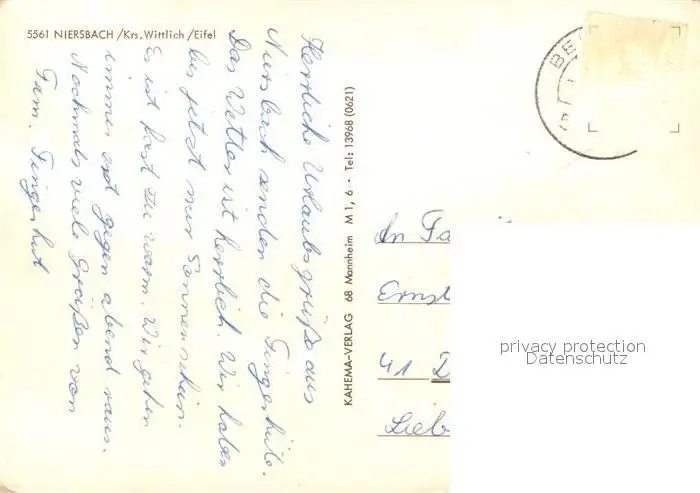 5561 NIERSBACH /Krs. Wittlich /Eifel
Herrliche Urlaubsgrüße aus
Niersbach senden die Fingerhüte.
Das Wetter ist herrlich. Wir haben
bis jetzt nur Sonnenschein.
Es ist fast zu warm. Wir gehen
immer erst gegen abend raus.
Nochmals viele Grüßen von
Fam. Fingerhut
KAHEMA-VERLAG 68 Mannheim M 1, 6 - Tel: 13968 (0621)
BE
An Fa
Ernst
41 D
Lieb
privacy protection
Datenschutz